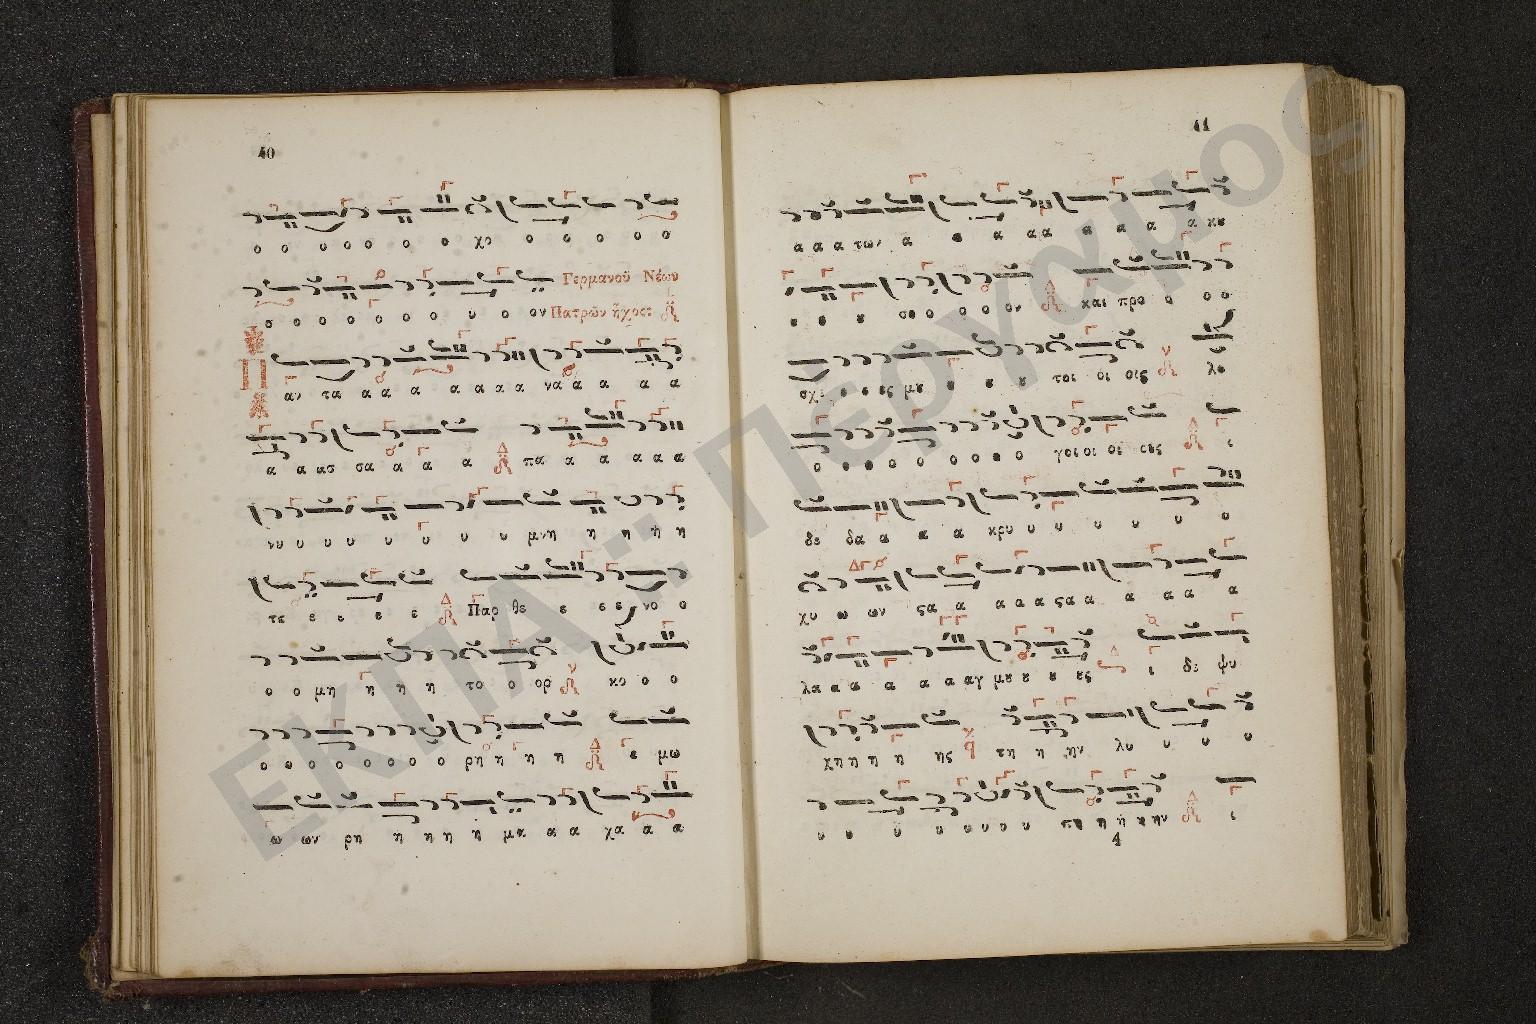 40
ο ο ο ο ο ο ο χο ο ο ο ο ο
Γερμανοῦ Νέων
ο ο ο ο ο ο ο υ ο ον Πατρῶν ἦχος:
Παν τα α α α α α α α να α α α α
α α ασ σα α α α πα α α α α α
νυ υ υ υ υ υ υ υ μνη η η η η
τε ε ε ε ε Παρ θε ε ε ε νο ο
ο ο μη η η η το ο ορ κο ο ο
ο ο ο ο ο ο ο ο ρη η η η ε μω
ω ων ρη η η η η μα α α χα α α
41
α α α των α α α α α α α α α κυ
υ υ υ συ ο ο ο ον και προ ο ο ο
σχε ε ε ες μυ υ υ υ τοι οι οις λο
ο ο ο ο ο ο ο ο γοι οι οι οις ι
δε δα α α α κρυ υ υ υ υ υ υ
χυ ω ων ςα α α α α ςα α α α α α
λα α α α α α αγ μυ υ υ υς ι δε ψυ
χη η η η ης τη η ην λυ υ υ υ
υ υ υ υ υ υ υ πη η η η ην ι
4
ΕΚΠΑ:: Πέργαμος